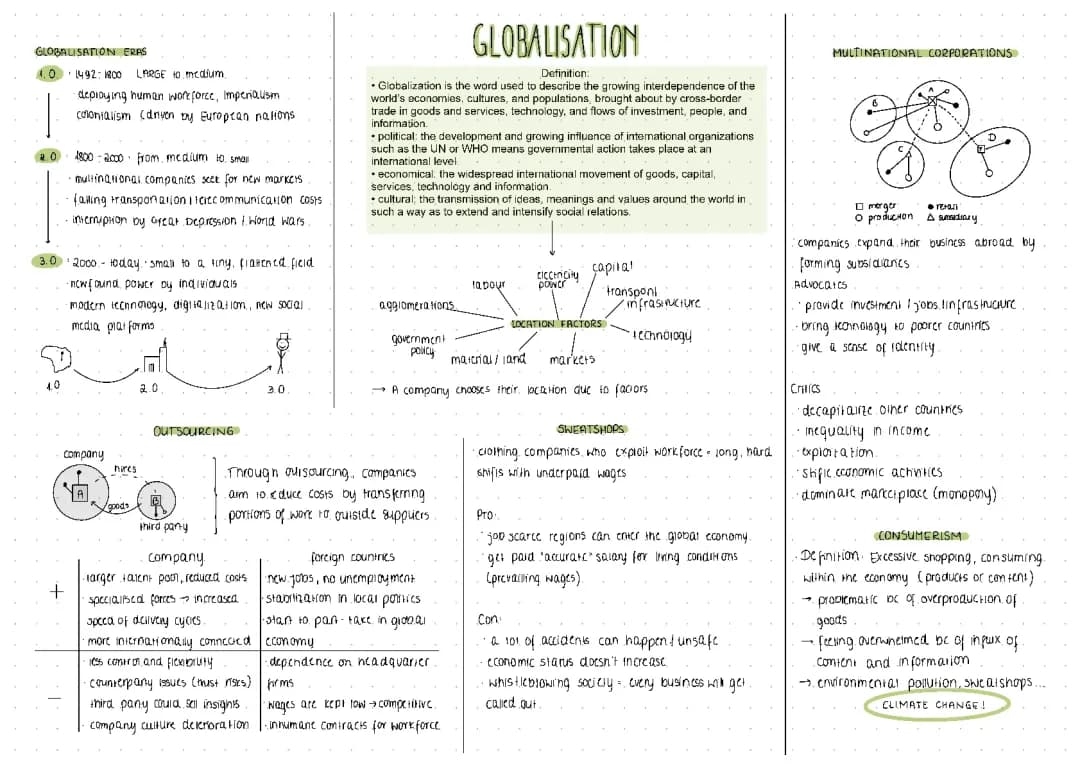 GLOBALISATION
GLOBALISATION ERAS
1.0 · 1492-1800 LARGE to medium
· deploying human workforce, Imperialism
colonialism (driven by European nations
2.0 · 1800-2000 · from medium to small
· multinational companies seek for new markets
· falling transportation / telecommunication costs
· interruption by Great Depression / World Wars
3.0 · 2000 - today · small to a tiny, flattened field
· newfound power by individuals
· modern technology, digitalization, new social
media platforms
1.0 2.0 3.0
Definition:
• Globalization is the word used to describe the growing interdependence of the
world's economies, cultures, and populations, brought about by cross-border
trade in goods and services, technology, and flows of investment, people, and
information.
• political: the development and growing influence of international organizations
such as the UN or WHO means governmental action takes place at an
international level
• economical: the widespread international movement of goods, capital,
services, technology and information.
• cultural: the transmission of ideas, meanings and values around the world in
such a way as to extend and intensify social relations.
LOCATION FACTORS
agglomerations
labour
electricity
power
capital
transport
infrastructure
technology
markets
material / land
government
policy
→ A company chooses their location due to factors
MULTINATIONAL CORPORATIONS
A
B
C
D
□ merger ● retail
○ production △ subsidiary
· companies expand their business abroad by
forming subsidiaries
Advocates
· provide investment / jobs / infrastructure
· bring technology to poorer countries
· give a sense of identity
Critics
· decapitalize other countries
· inequality in income
· exploitation
· stifle economic activities
· dominate marketplace (monopony)
OUTSOURCING
company
hires
A
goods
B
third party
Through outsourcing, companies
aim to reduce costs by transferring
portions of work to outside suppliers
company foreign countries
+
· larger talent pool, reduced costs
· specialised forces → increased
speed of delivery cycles
· more internationally connected
· new jobs, no unemployment
· stabilization in local politics
· start to part-take in global
economy
-
· less control and flexibility
· counterparty issues (trust rises)
· third party could sell insights
· company culture deterioration
· dependence on headquarter
firms
· wages are kept low → competitive
· inhumane contracts for workforce
SWEATSHOPS
· clothing companies who exploit workforce = long, hard
shifts with underpaid wages
Pro:
· job scarce regions can enter the global economy
· get paid "accurate" salary for living conditions
(prevailing wages)
Con:
· a lot of accidents can happen / unsafe
· economic status doesn't increase
· whistleblowing society = every business will get
called out
CONSUMERISM
· Definition: Excessive shopping, consuming
within the economy (products or content)
→ problematic bc of overproduction of
goods
→ feeling overwhelmed bc of influx of
content and information
→ environmental pollution, sweatshops...
CLIMATE CHANGE!